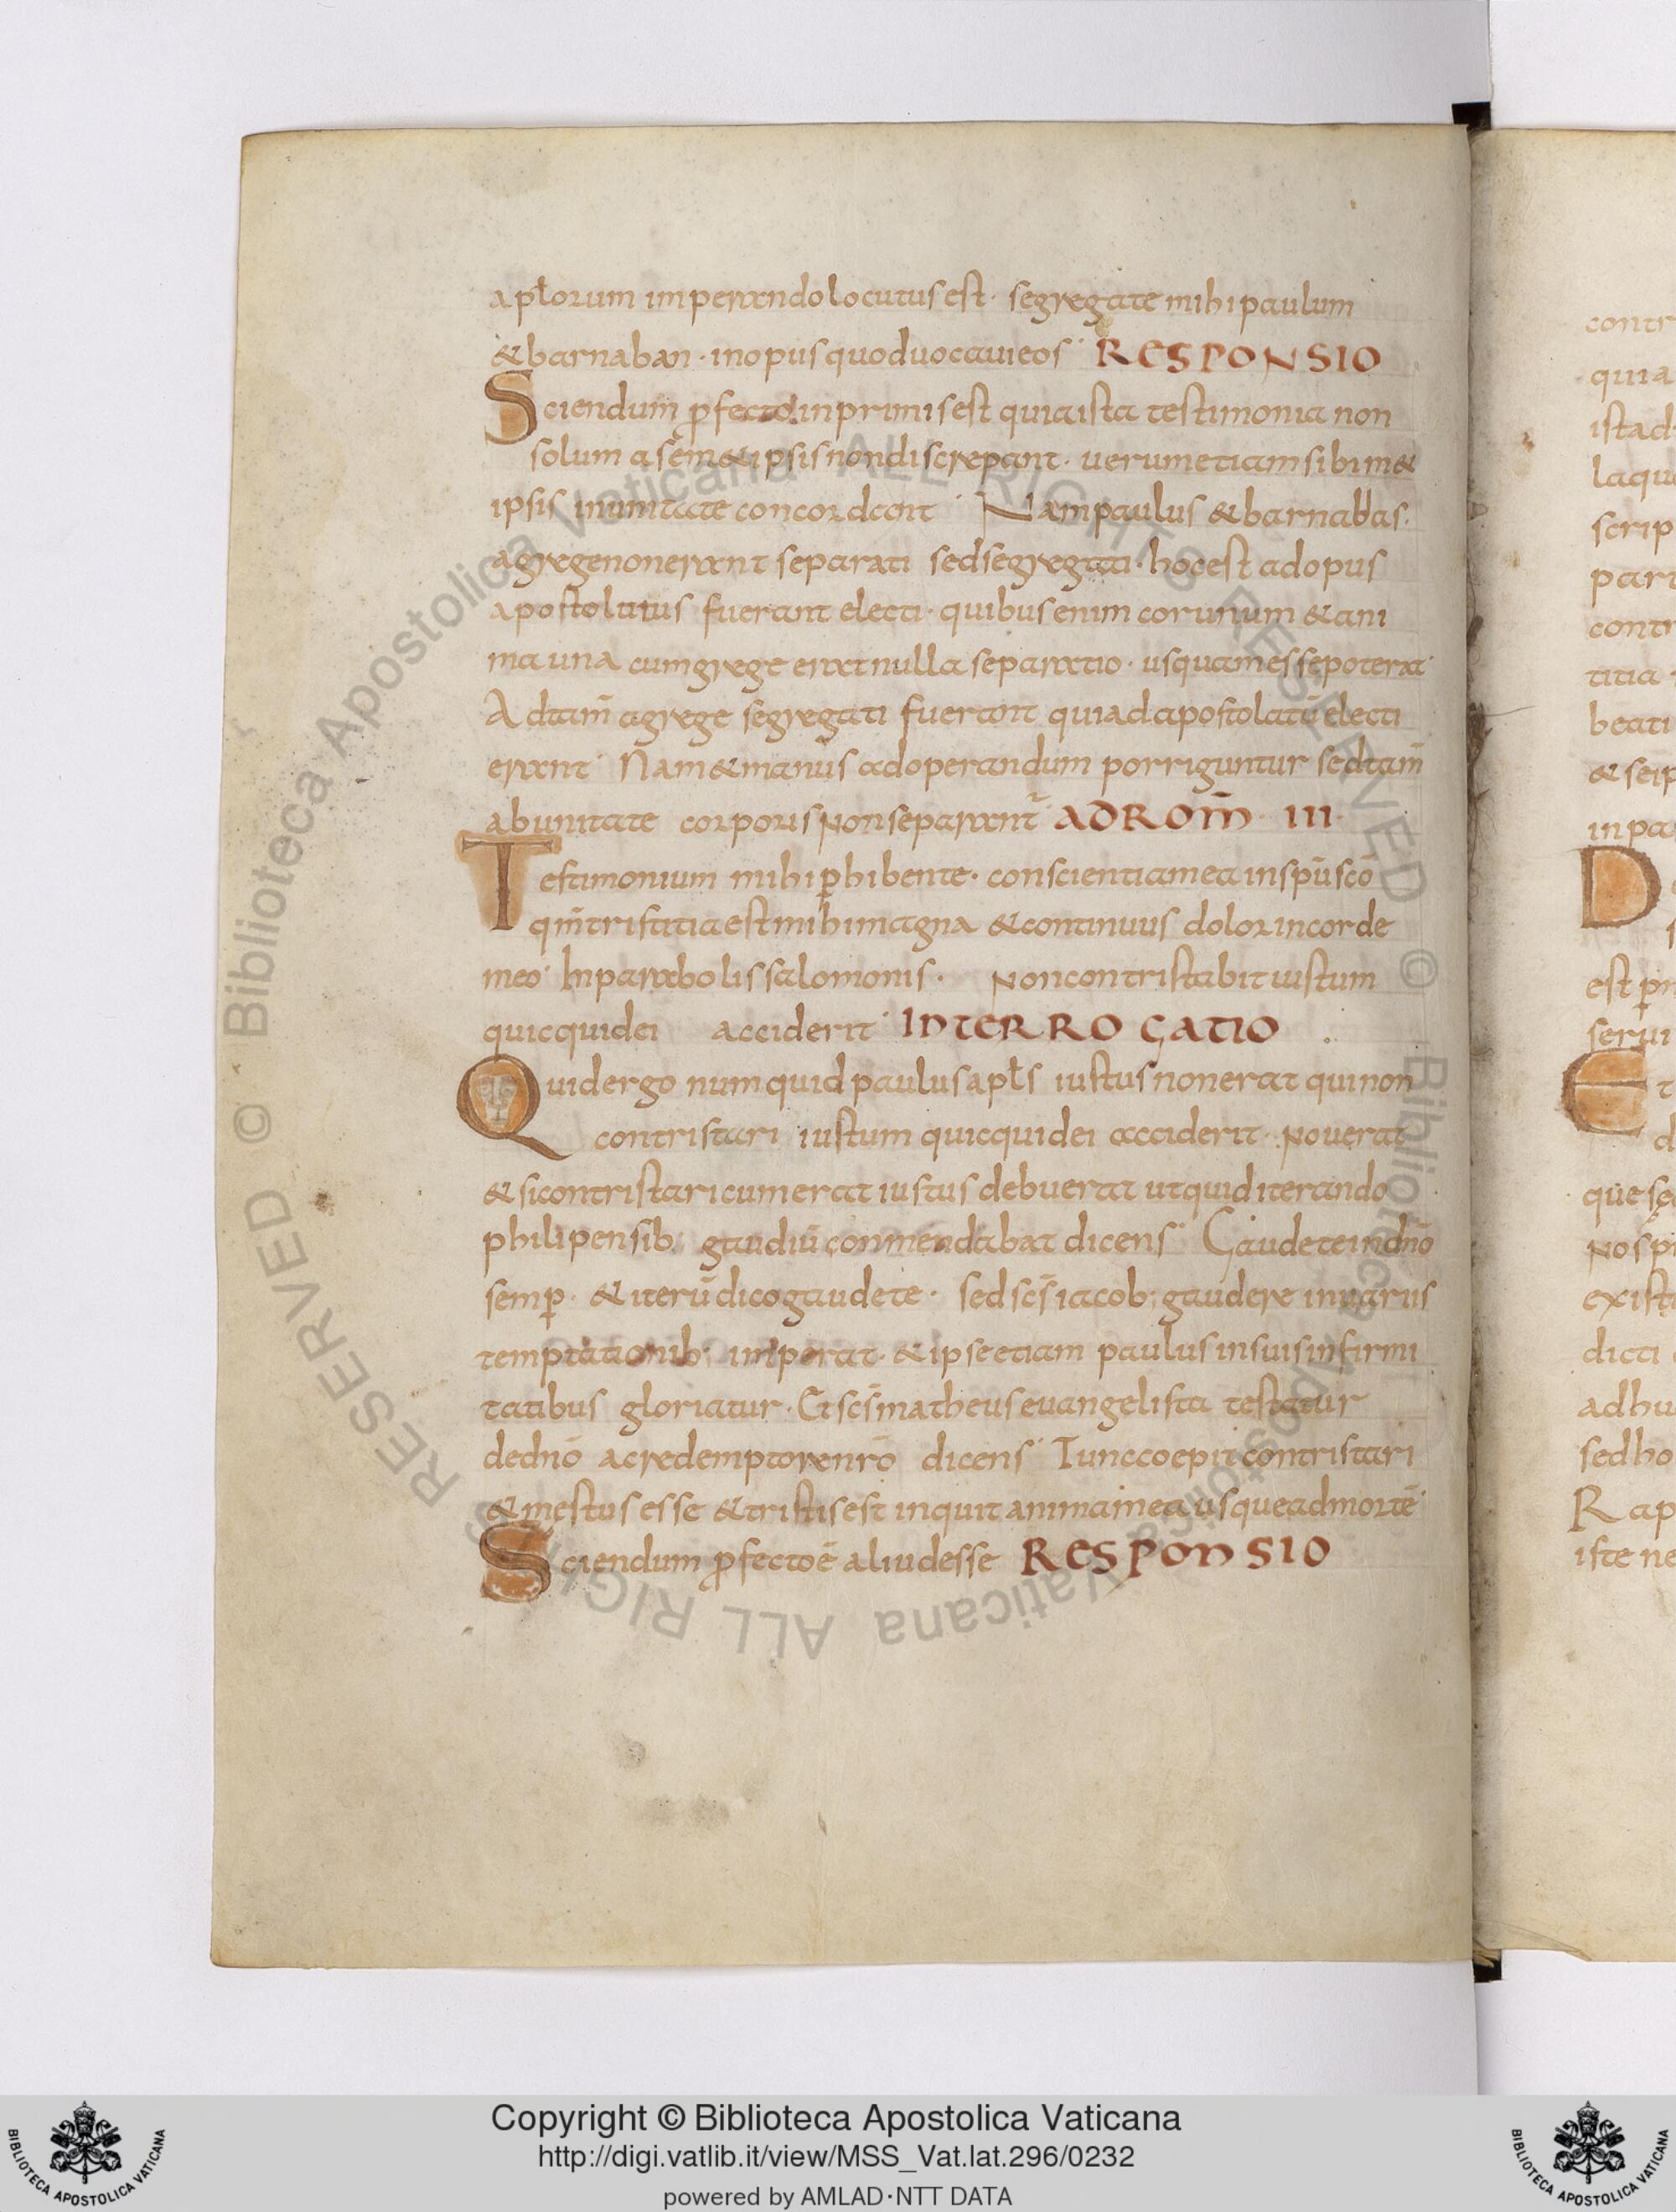 apłorum imperando locutus est· segregate mihi paulum
& barnaban· in opus quod uocaui eos· RESPONSIO
Sciendum ꝓfecto inprimis est quia ista testimonia non
solum a sem& ipsis non discrepant· uerum etiam sibi m&
ipsis in unitate concordant· Nam paulus & barnabas·
a grege non erant separati sed segregati· hoc est ad opus
apostolatus fuerant electi· quibus enim cor unum & ani
ma una cum grege erat nulla separatio· usquam esse poterat·
Ad tam̄ a grege segregati fuerant quia ad apostolatū electi
erant· Nam & manus ad operandum porriguntur sed tam̄
ab unitate corporis non separant̄ AD ROM̄· III·
Testimonium mihi ꝑhibente· conscientia mea in sp̄u sc̄o
qm̄ tristitia est mihi magna & continuus dolor in corde
meo· In parabolis salomonis· Non contristabit iustum
quicquid ei acciderit· INTERROGATIO
Quid ergo numquid paulus apłs iustus non erat qui non
contristari iustum quicquid ei acciderit· Nouerat
& si contristari cum erat iustus debuerat ut quid iterando
philipensib; gaudiū conmendabat dicens· Gaudete in dn̄o
semꝑ· & iterū dico gaudete· sed sc̄s iacob; gaudere in uariis
temptationib; imperat· & ipse etiam paulus in suis infirmi
tatibus gloriatur· Et sc̄s matheus euangelista testatur
de dn̄o ac redemptore nr̄o dicens· Tunc coepit contristari
& mestus esse & tristis est inquit anima mea usque ad mortē·
Sciendum ꝓfecto ē aliud esse RESPONSIO
contr
quia
istad
laqu
scrip
part
contr
titia
beati
& seip
in pa
D
est ꝑn
serui
E t
d
que se
Nos
existi
dicti
adhu
sed ho
R ap
iste ne
© Biblioteca Apostolica Vaticana ALL RIGHTS RESERVED © Biblioteca Apostolica Vaticana ALL RIGHTS RESERVED
Copyright © Biblioteca Apostolica Vaticana
http://digi.vatlib.it/view/MSS_Vat.lat.296/0232
powered by AMLAD·NTT DATA
BIBLIOTECA APOSTOLICA VATICANA
BIBLIOTECA APOSTOLICA VATICANA